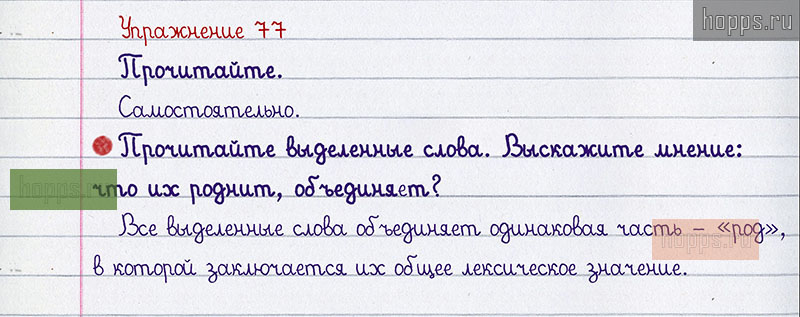 Упражнение 77
hopps.ru
Прочитайте.
Самостоятельно.
Прочитайте выделенные слова. Выскажите мнение:
hopps.ru
что их роднит, объединяет?
Все выделенные слова объединяет одинаковая часть – «род»,
hopps.ru
в которой заключается их общее лексическое значение.